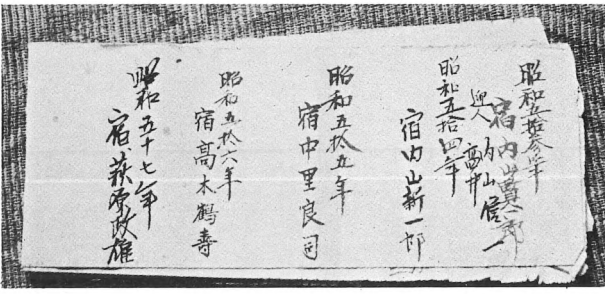 昭和五拾参年
宿 内山
迎人 内山信一
高井
昭和五拾四年
宿 内山新一郎
昭和五拾五年
宿 中里良司
昭和五拾六年
宿 高木鶴寿
昭和五十七年
宿、萩原政雄